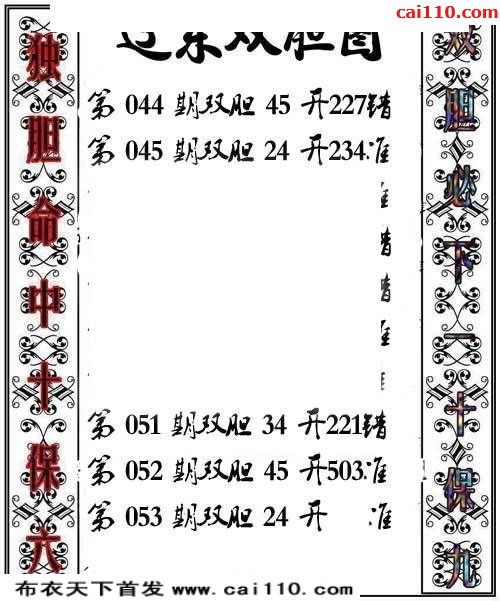 cai110.com
东双胆图
独胆命中十保六
第 044 期双胆 45 开227错
第 045 期双胆 24 开234准
第 051 期双胆 34 开221错
第 052 期双胆 45 开503准
第 053 期双胆 24 开 准
双胆必下一十保九
布衣天下首发 www.cai110.com